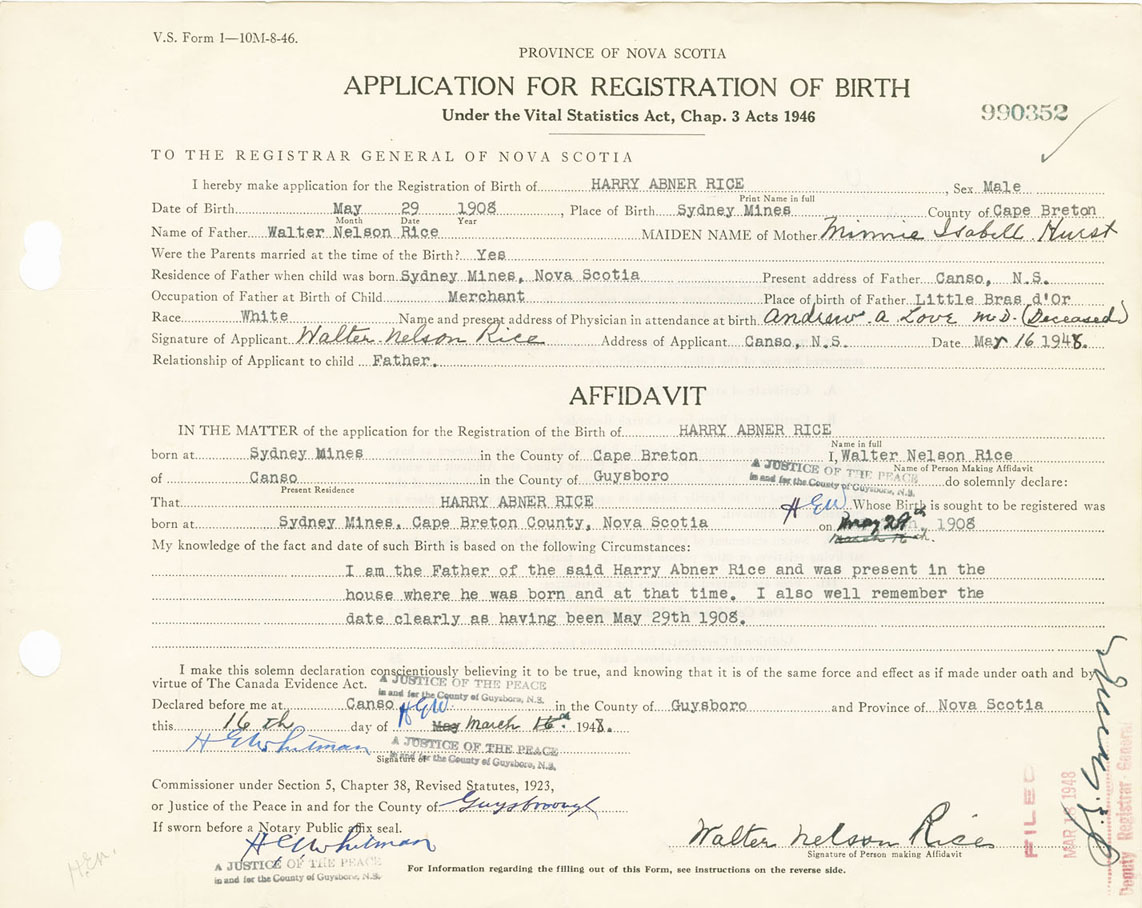 V.S. Form 1—10M-8-46.
PROVINCE OF NOVA SCOTIA
APPLICATION FOR REGISTRATION OF BIRTH
Under the Vital Statistics Act, Chap. 3 Acts 1946
990352
TO THE REGISTRAR GENERAL OF NOVA SCOTIA
I hereby make application for the Registration of Birth of HARRY ABNER RICE, Sex Male
Print Name in full
Date of Birth May 29 1908, Place of Birth Sydney Mines County of Cape Breton
Month Date Year
Name of Father Walter Nelson Rice MAIDEN NAME of Mother Minnie Isabell Hurst
Were the Parents married at the time of the Birth? Yes
Residence of Father when child was born Sydney Mines, Nova Scotia Present address of Father Canso, N.S.
Occupation of Father at Birth of Child Merchant Place of birth of Father Little Bras d'Or
Race White Name and present address of Physician in attendance at birth Andrew A Love M.D. (Deceased)
Signature of Applicant Walter Nelson Rice Address of Applicant Canso, N.S. Date Mar 16 1948.
Relationship of Applicant to child Father.
AFFIDAVIT
IN THE MATTER of the application for the Registration of the Birth of HARRY ABNER RICE
Name in full
born at Sydney Mines in the County of Cape Breton I, Walter Nelson Rice
Name of Person Making Affidavit
A JUSTICE OF THE PEACE
in and for the County of Guysboro, N.S.
of Canso in the County of Guysboro do solemnly declare:
Present Residence
That HARRY ABNER RICE HEW Whose Birth is sought to be registered was
born at Sydney Mines, Cape Breton County, Nova Scotia on May 29th, 1908
My knowledge of the fact and date of such Birth is based on the following Circumstances:
I am the Father of the said Harry Abner Rice and was present in the
house where he was born and at that time. I also well remember the
date clearly as having been May 29th 1908.
I make this solemn declaration conscientiously believing it to be true, and knowing that it is of the same force and effect as if made under oath and by
virtue of The Canada Evidence Act.
A JUSTICE OF THE PEACE
in and for the County of Guysboro, N.S.
Declared before me at Canso HEW in the County of Guysboro and Province of Nova Scotia
this 16 th day of May March 16th 1948.
H E Whitman
A JUSTICE OF THE PEACE
in and for the County of Guysboro, N.S.
Signature of
Commissioner under Section 5, Chapter 38, Revised Statutes, 1923,
or Justice of the Peace in and for the County of Guysborough
If sworn before a Notary Public affix seal.
H E Whitman
A JUSTICE OF THE PEACE
in and for the County of Guysboro, N.S.
Walter Nelson Rice
Signature of Person making Affidavit
For Information regarding the filling out of this Form, see instructions on the reverse side.
FILED
MAR 18 1948
Deputy Registrar-General